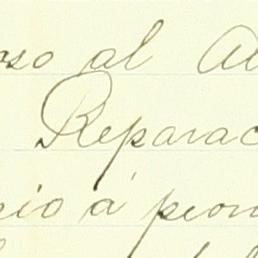 oso al A
Reparac
cio á peon